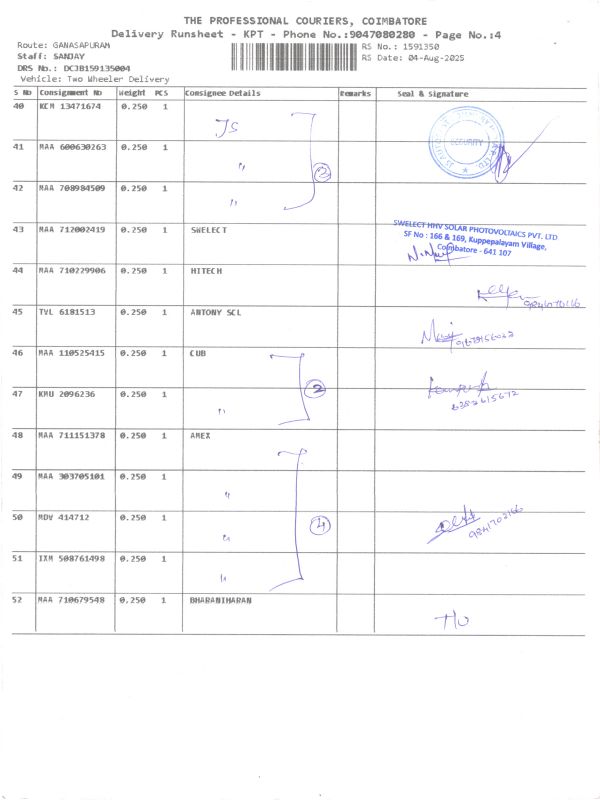 THE PROFESSIONAL COURIERS, COIMBATORE
Delivery Runsheet - KPT - Phone No.:9047080280 - Page No.:4
Route: GANASAPURAM
RS No.: 1591350
Staff: SANJAY
RS Date: 04-Aug-2025
DRS No.: DC3B159135004
Vehicle: Two Wheeler Delivery
S No Consignment No Weight PCS Consignee Details Remarks Seal & Signature
40 KCM 13471674 0.250 1 JS
SECURITY
41 MAA 600630263 0.250 1 〃 3
42 MAA 708984509 0.250 1 〃
43 MAA 712002419 0.250 1 SWELECT
SWELECT HHV SOLAR PHOTOVOLTAICS PVT. LTD
SF No : 166 & 169, Kuppepalayam Village,
Coimbatore - 641 107
44 MAA 710229906 0.250 1 HITECH
45 TVL 6181513 0.250 1 ANTONY SCL
46 MAA 110525415 0.250 1 CUB
47 KMU 2096236 0.250 1 〃 2
6382615672
48 MAA 711151378 0.250 1 AMEX
49 MAA 303705101 0.250 1 〃
50 MDV 414712 0.250 1 〃 4
51 IXM 508761498 0.250 1 〃
52 MAA 710679548 0.250 1 BHARANIHARAN